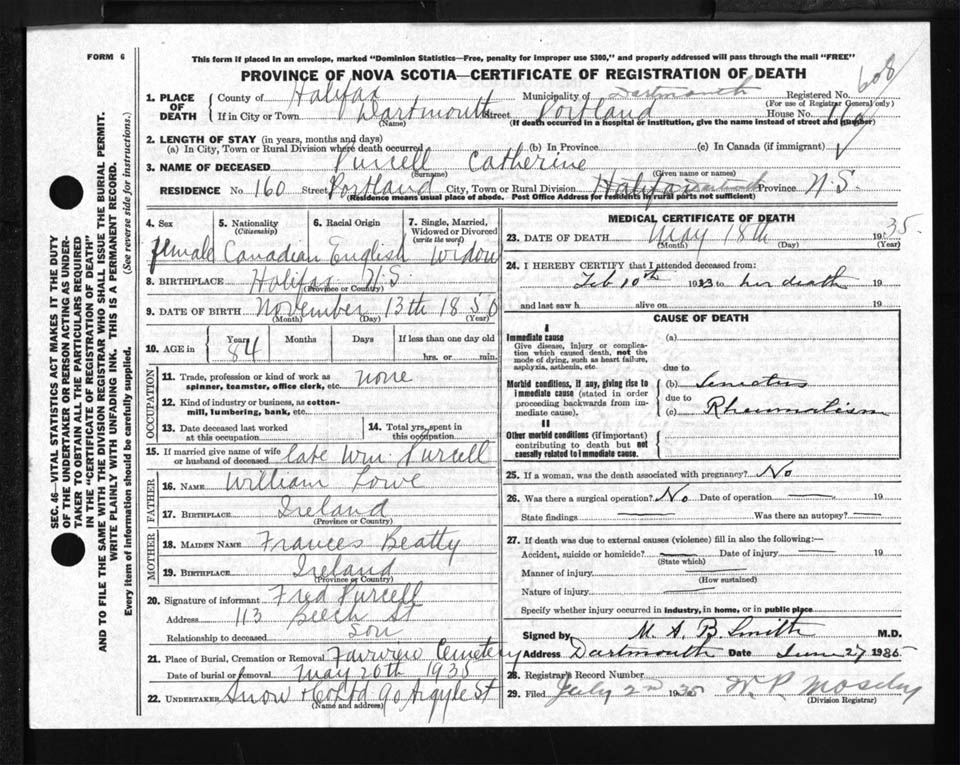 FORM 6
This form if placed in an envelope, marked "Dominion Statistics—Free, penalty for improper use $300," and properly addressed will pass through the mail "FREE"
PROVINCE OF NOVA SCOTIA—CERTIFICATE OF REGISTRATION OF DEATH
608
1. PLACE OF DEATH
County of Halifax Municipality of Dartmouth Registered No.
(For use of Registrar General only)
If in City or Town Dartmouth Street Portland House No.
(Name) (If death occurred in a hospital or institution, give the name instead of street and number)
2. LENGTH OF STAY (in years, months and days)
(a) In City, Town or Rural Division where death occurred (b) In Province (c) In Canada (if immigrant)
3. NAME OF DECEASED Purcell Catherine
(Surname) (Given name or names)
RESIDENCE No 160 Street Portland City, Town or Rural Division Halifax Province N.S.
(Residence means usual place of abode. Post Office Address for residents in rural parts not sufficient)
4. Sex 5. Nationality (Citizenship) 6. Racial Origin 7. Single, Married, Widowed or Divorced (write the word)
female Canadian English Widow
8. BIRTHPLACE Halifax N.S.
(Province or Country)
9. DATE OF BIRTH November 13th 1850
(Month) (Day)
10. AGE in Years Months Days If less than one day old
84 hrs. or min.
OCCUPATION
11. Trade, profession or kind of work as spinner, teamster, office clerk, etc. none
12. Kind of industry or business, as cotton-mill, lumbering, bank, etc.
13. Date deceased last worked at this occupation 14. Total yrs. spent in this occupation
15. If married give name of wife or husband of deceased late Wm. Purcell
FATHER
16. NAME William Lowe
17. BIRTHPLACE Ireland
(Province or Country)
MOTHER
18. MAIDEN NAME Frances Beatty
19. BIRTHPLACE Ireland
(Province or Country)
20. Signature of informant Fred Purcell
Address 113 Beech St
Relationship to deceased son
21. Place of Burial, Cremation or Removal Fairview Cemetery
Date of burial or removal May 20th 1935
22. UNDERTAKER Snow & Co Ltd 90 Argyle St
(Name and address)
MEDICAL CERTIFICATE OF DEATH
23. DATE OF DEATH May 18th 1935.
(Month) (Day) (Year)
24. I HEREBY CERTIFY that I attended deceased from:
Feb 10th 1933 to her death 19
and last saw h alive on 19
CAUSE OF DEATH
I
Immediate cause (a)
Give disease, injury or complication which caused death, not the mode of dying, such as heart failure, asphyxia, asthenia, etc.
due to
Morbid conditions, if any, giving rise to immediate cause (stated in order proceeding backwards from immediate cause).
(b) Senectus
due to
(c) Rheumatism
II
Other morbid conditions (if important) contributing to death but not causally related to immediate cause.
25. If a woman, was the death associated with pregnancy? No
26. Was there a surgical operation? No Date of operation 19
State findings Was there an autopsy?
27. If death was due to external causes (violence) fill in also the following:—
Accident, suicide or homicide? Date of injury 19
(State which)
Manner of injury
(How sustained)
Nature of injury
Specify whether injury occurred in industry, in home, or in public place
Signed by M. A. B. Smith M.D.
Address Dartmouth Date June 27 1935
28. Registrar's Record Number
29. Filed July 2nd 1935 W. P. Moseley
(Division Registrar)
SEC. 46—VITAL STATISTICS ACT MAKES IT THE DUTY
OF THE UNDERTAKER OR PERSON ACTING AS UNDER-
TAKER TO OBTAIN ALL THE PARTICULARS REQUIRED
IN THE "CERTIFICATE OF REGISTRATION OF DEATH"
AND TO FILE THE SAME WITH THE DIVISION REGISTRAR WHO SHALL ISSUE THE BURIAL PERMIT.
WRITE PLAINLY WITH UNFADING INK. THIS IS A PERMANENT RECORD.
Every item of information should be carefully supplied. (See reverse side for instructions.)